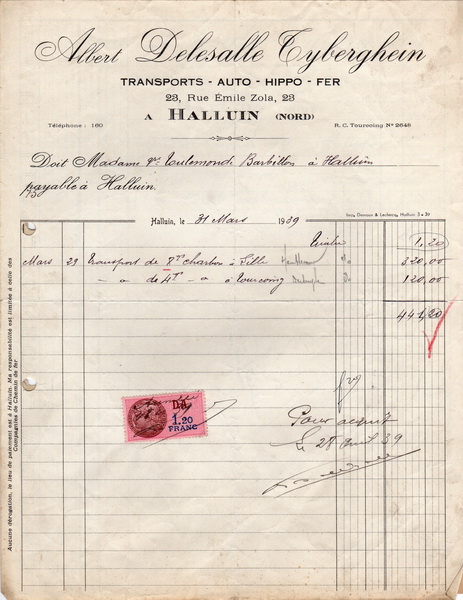 Albert Delesalle Tyberghein
TRANSPORTS - AUTO - HIPPO - FER
23, Rue Émile Zola, 23
Téléphone : 160
A HALLUIN (NORD)
R. C. Tourcoing Nº 2648
Doit Madame Vve Toulemonde Barbillon à Halluin
payable à Halluin.
Halluin, le 31 Mars 1939
Imp. Devaux & Leclercq, Halluin 3-30
Timbre 1,20
Mars 29 transport de 8Ts charbon à Lille 320,00
-"- de 4Ts -"- à Tourcoing 120,00
441,20
1.20
FRANC
Pour acquit
Le 28 avril 39
Aucune dérogation, le lieu du paiement est à Halluin. Ma responsabilité est limitée à celle des
Compagnies de Chemin de fer